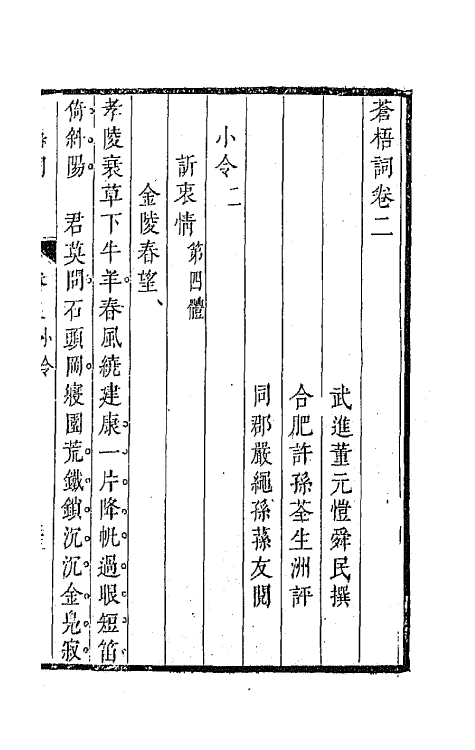 蒼梧詞卷二
武進董元愷舜民撰
合肥許孫荃生洲評
同郡嚴繩孫蓀友閱
小令二
訴衷情第四體
金陵春望、
孝陵衰草下牛羊。春風繞建康。一片降帆過眼。短笛
倚斜陽。　君莫問石頭岡。寢園荒。鐵鎖沉沉。金鳧寂